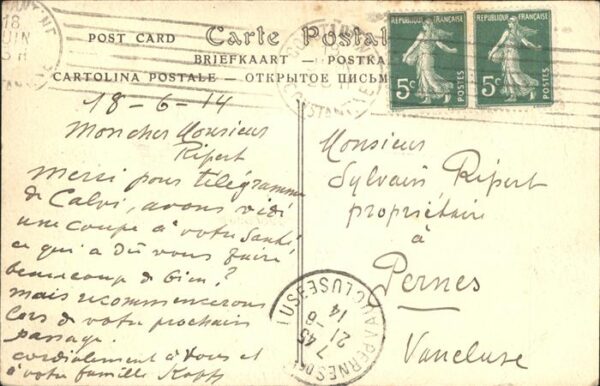 POST CARD Carte Postale
BRIEFKAART — POSTKA
CARTOLINA POSTALE — ОТКРЫТОЕ ПИСЬМ
REPUBLIQUE FRANÇAISE
5c
POSTES
REPUBLIQUE FRANÇAISE
5c
POSTES
18-6-14
Mon cher Monsieur
Ripert
Merci pour télégramme
de Calvi, avons vidé
une coupe à votre santé,
ce qui a dû vous faire
beaucoup de bien?
mais recommencerons
lors de votre prochain
passage.
cordialement à vous et
à votre famille
Monsieur
Sylvain Ripert
propriétaire
à
Pernes
Vaucluse
PERNES
VAUCLUSE
7 45
21-6
14